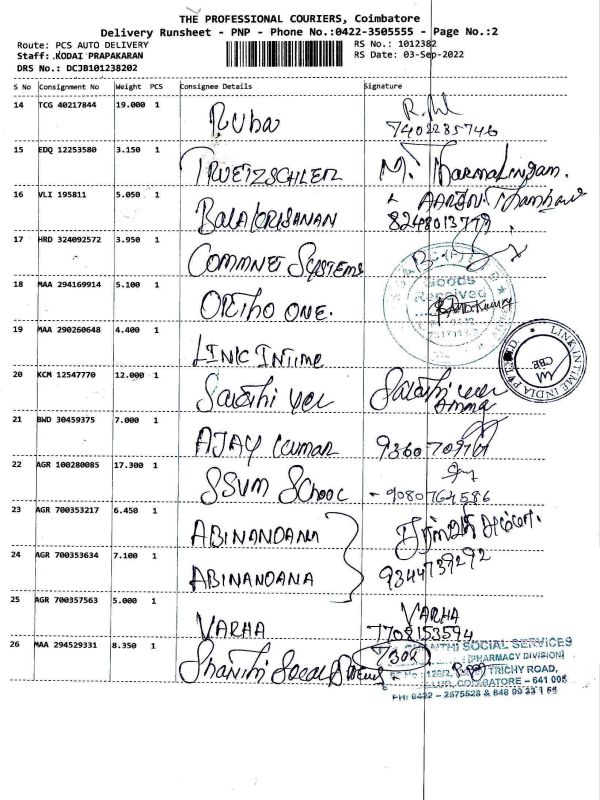 THE PROFESSIONAL COURIERS, Coimbatore
Delivery Runsheet - PNP - Phone No.:0422-3505555 - Page No.:2
Route: PCS AUTO DELIVERY
RS No.: 1012382
Staff: KODAI PRAPAKARAN
RS Date: 03-Sep-2022
DRS No.: DCJB101238202
S No Consignment No Weight PCS Consignee Details Signature
14 TCG 40217844 19.000 1
Ruba
7402285746
15 EDQ 12253580 3.150 1
TRUETZSCHLER M. Tharmalingam.
16 VLI 195811 5.050 1
Balakrishanan 8248013779
17 HRD 324092572 3.950 1
Commnet Systems
18 MAA 294169914 5.100 1
Ortho One.
Goods
Received
19 MAA 290260648 4.400 1
Link Intime
LINK INTIME INDIA PVT LTD
CBE
20 KCM 12547770 12.000 1
Sarathi
Amma
21 BWD 30459375 7.000 1
AJAY Kumar
22 AGR 100280085 17.300 1
SSVM School - 9080764586
23 AGR 700353217 6.450 1
ABINANDANA
24 AGR 700353634 7.100 1
ABINANDANA 9344739292
25 AGR 700357563 5.000 1
VARHA VARHA
7708153594
26 MAA 294529331 8.350 1
Shanthi Social
SHANTHI SOCIAL SERVICES
(PHARMACY DIVISION)
TRICHY ROAD,
COIMBATORE - 641 005